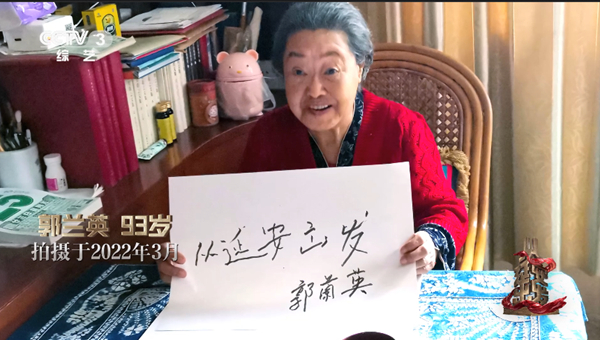 CCTV 3
综艺
郭兰英 93岁
拍摄于2022年3月
从延安出发
郭兰英